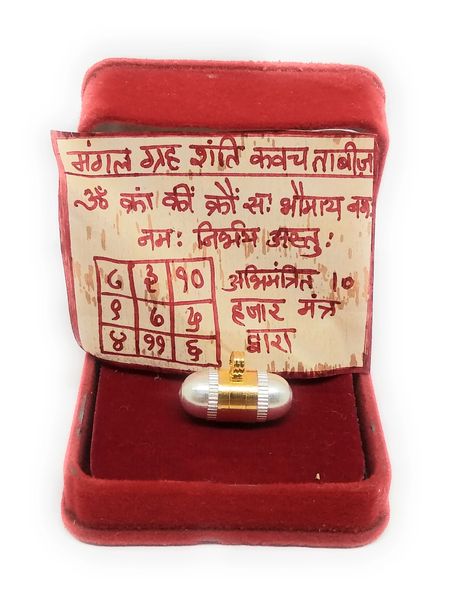 मंगल ग्रह शांति कवच ताबीज़
ॐ क्रां क्रीं क्रौं सः भौमाय
नमः अस्तु:
८ ३ १०
९ ७ ५
४ ११ ६
अभिमंत्रित १०
हजार मंत्र
द्वारा